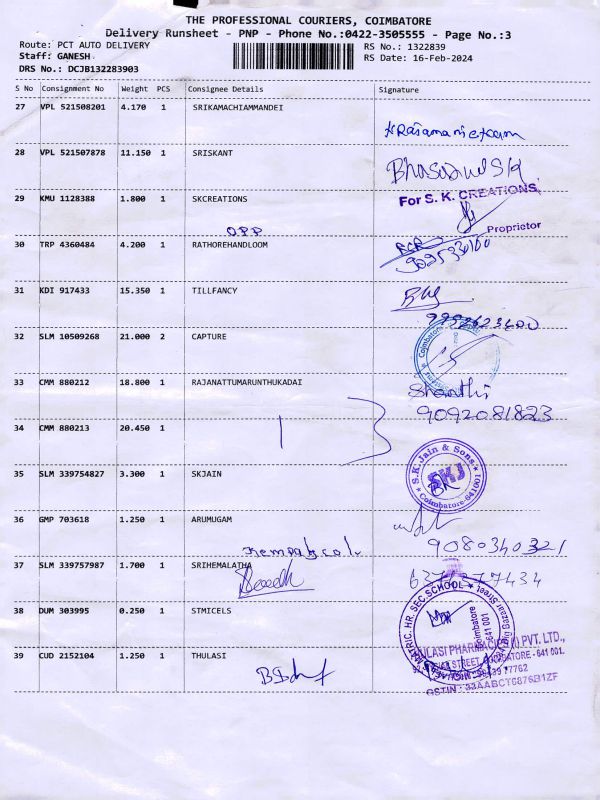 THE PROFESSIONAL COURIERS, COIMBATORE
Delivery Runsheet - PNP - Phone No.:0422-3505555 - Page No.:3
Route: PCT AUTO DELIVERY RS No.: 1322839
Staff: GANESH RS Date: 16-Feb-2024
DRS No.: DCJB132283903
S No Consignment No Weight PCS Consignee Details Signature
27 VPL 521508201 4.170 1 SRIKAMACHIAMMANDEI
28 VPL 521507878 11.150 1 SRISKANT
29 KMU 1128388 1.800 1 SKCREATIONS
For S. K. CREATIONS,
Proprietor
OPP
30 TRP 4360484 4.200 1 RATHOREHANDLOOM
31 KDI 917433 15.350 1 TILLFANCY
9952623400
32 SLM 10509268 21.000 2 CAPTURE
Coimbatore
33 CMM 880212 18.800 1 RAJANATTUMARUNTHUKADAI
Shanthi
9092081823
34 CMM 880213 20.450 1
35 SLM 339754827 3.300 1 SKJAIN
S.K. Jain & Sons
SKJ
Coimbatore-641001
36 GMP 703618 1.250 1 ARUMUGAM
9080340321
37 SLM 339757987 1.700 1 SRIHEMALATHA
6374377434
38 DUM 303995 0.250 1 STMICELS
MATRIC. HR. SEC. SCHOOL
Coimbatore
641 001
39 CUD 2152104 1.250 1 THULASI
THULASI PHARMACIES (I) PVT. LTD.,
STREET, COIMBATORE - 641 001.
GSTIN : 33AABCT6876B1ZF